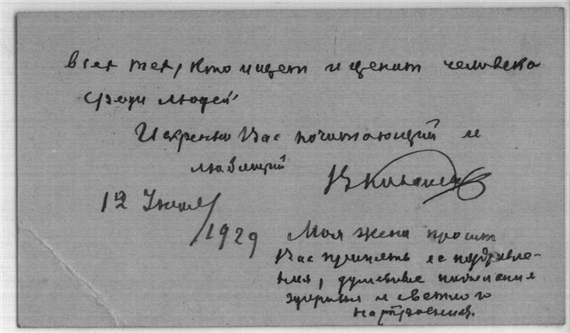 всех тех, кто ищет и ценит человека
среди людей"
Искренно Вас почитающий и
любящий
12 Июня
/1929
Моя жена просит
Вас принять ее поздравле-
ния, душевные пожелания
здоровья и светлого
настроения.